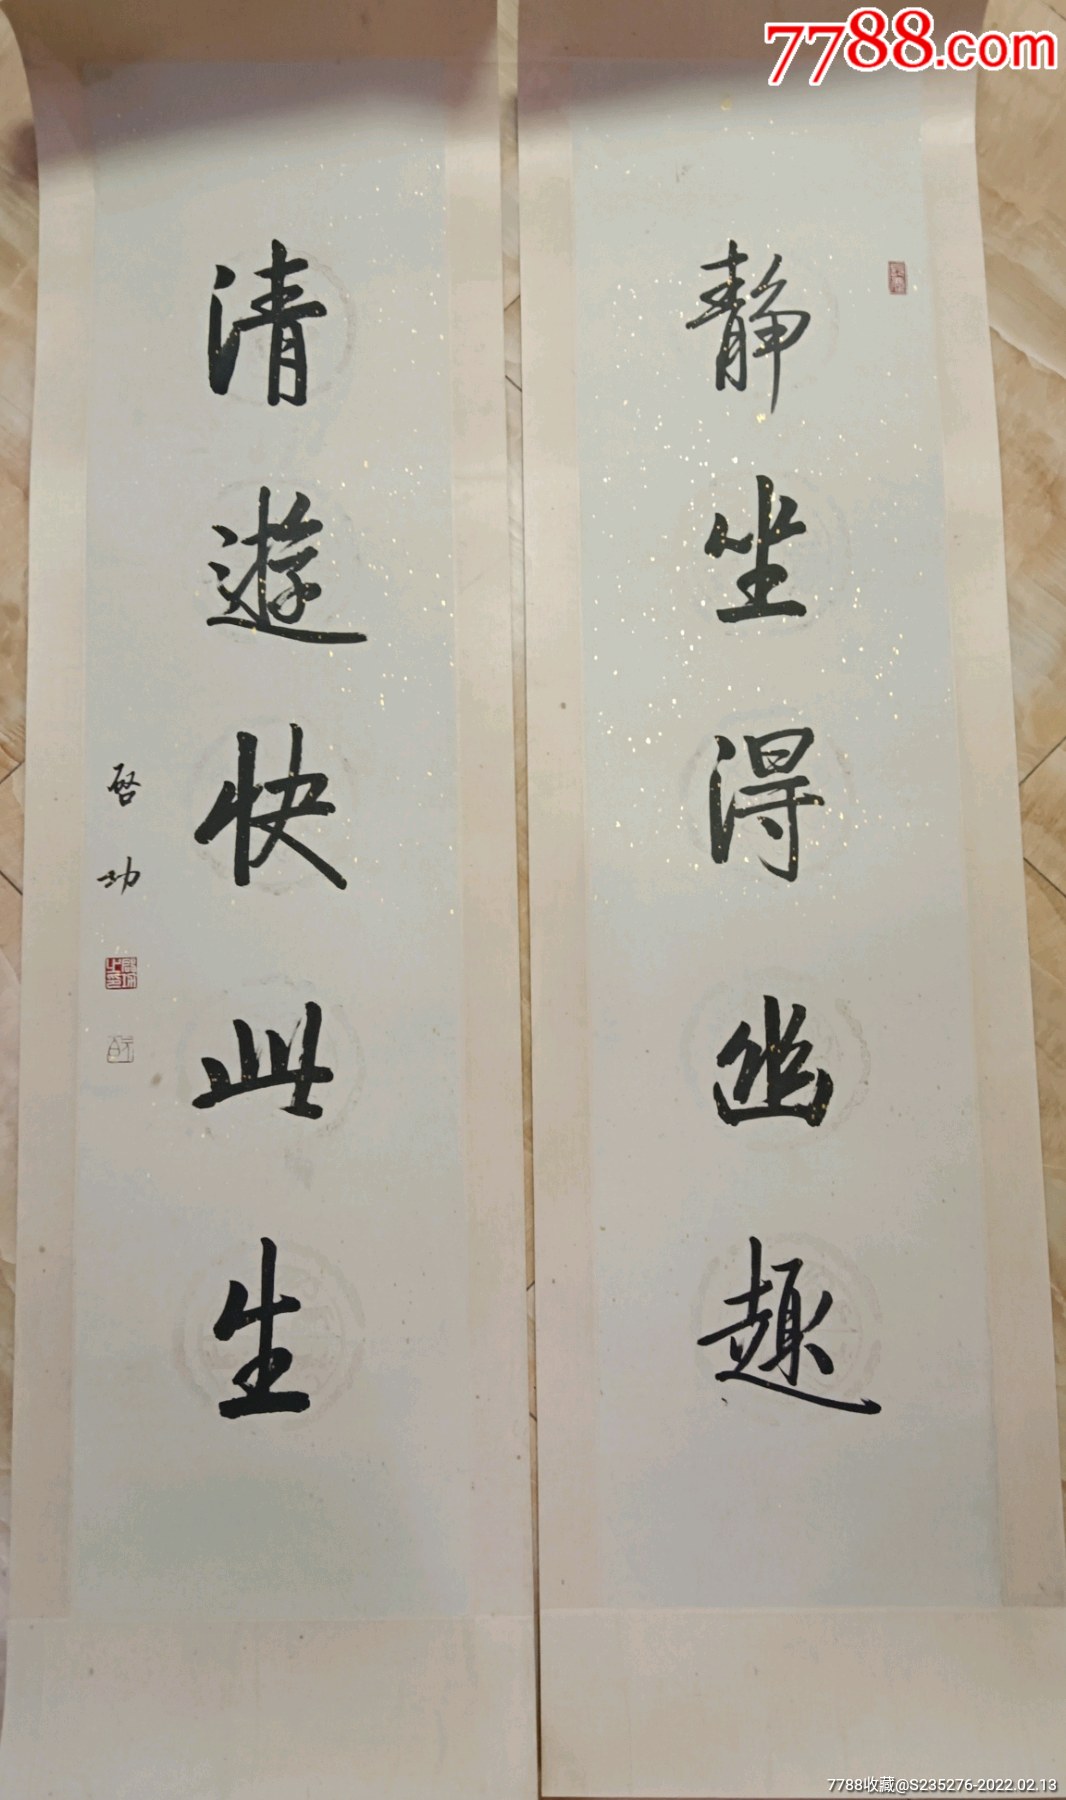 7788.com
靜坐得幽趣
清遊快此生
啓功
7788收藏@S235276-2022.02.13